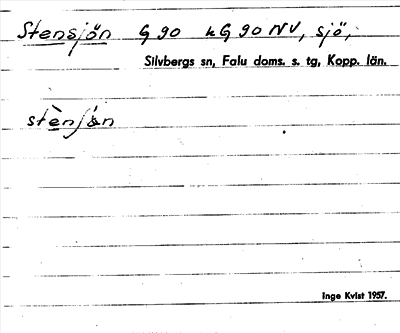 Stensjön G 90 kG 90 NV, sjö,
Silvbergs sn, Falu doms. s. tg, Kopp. län.
Inge Kvist 1957.